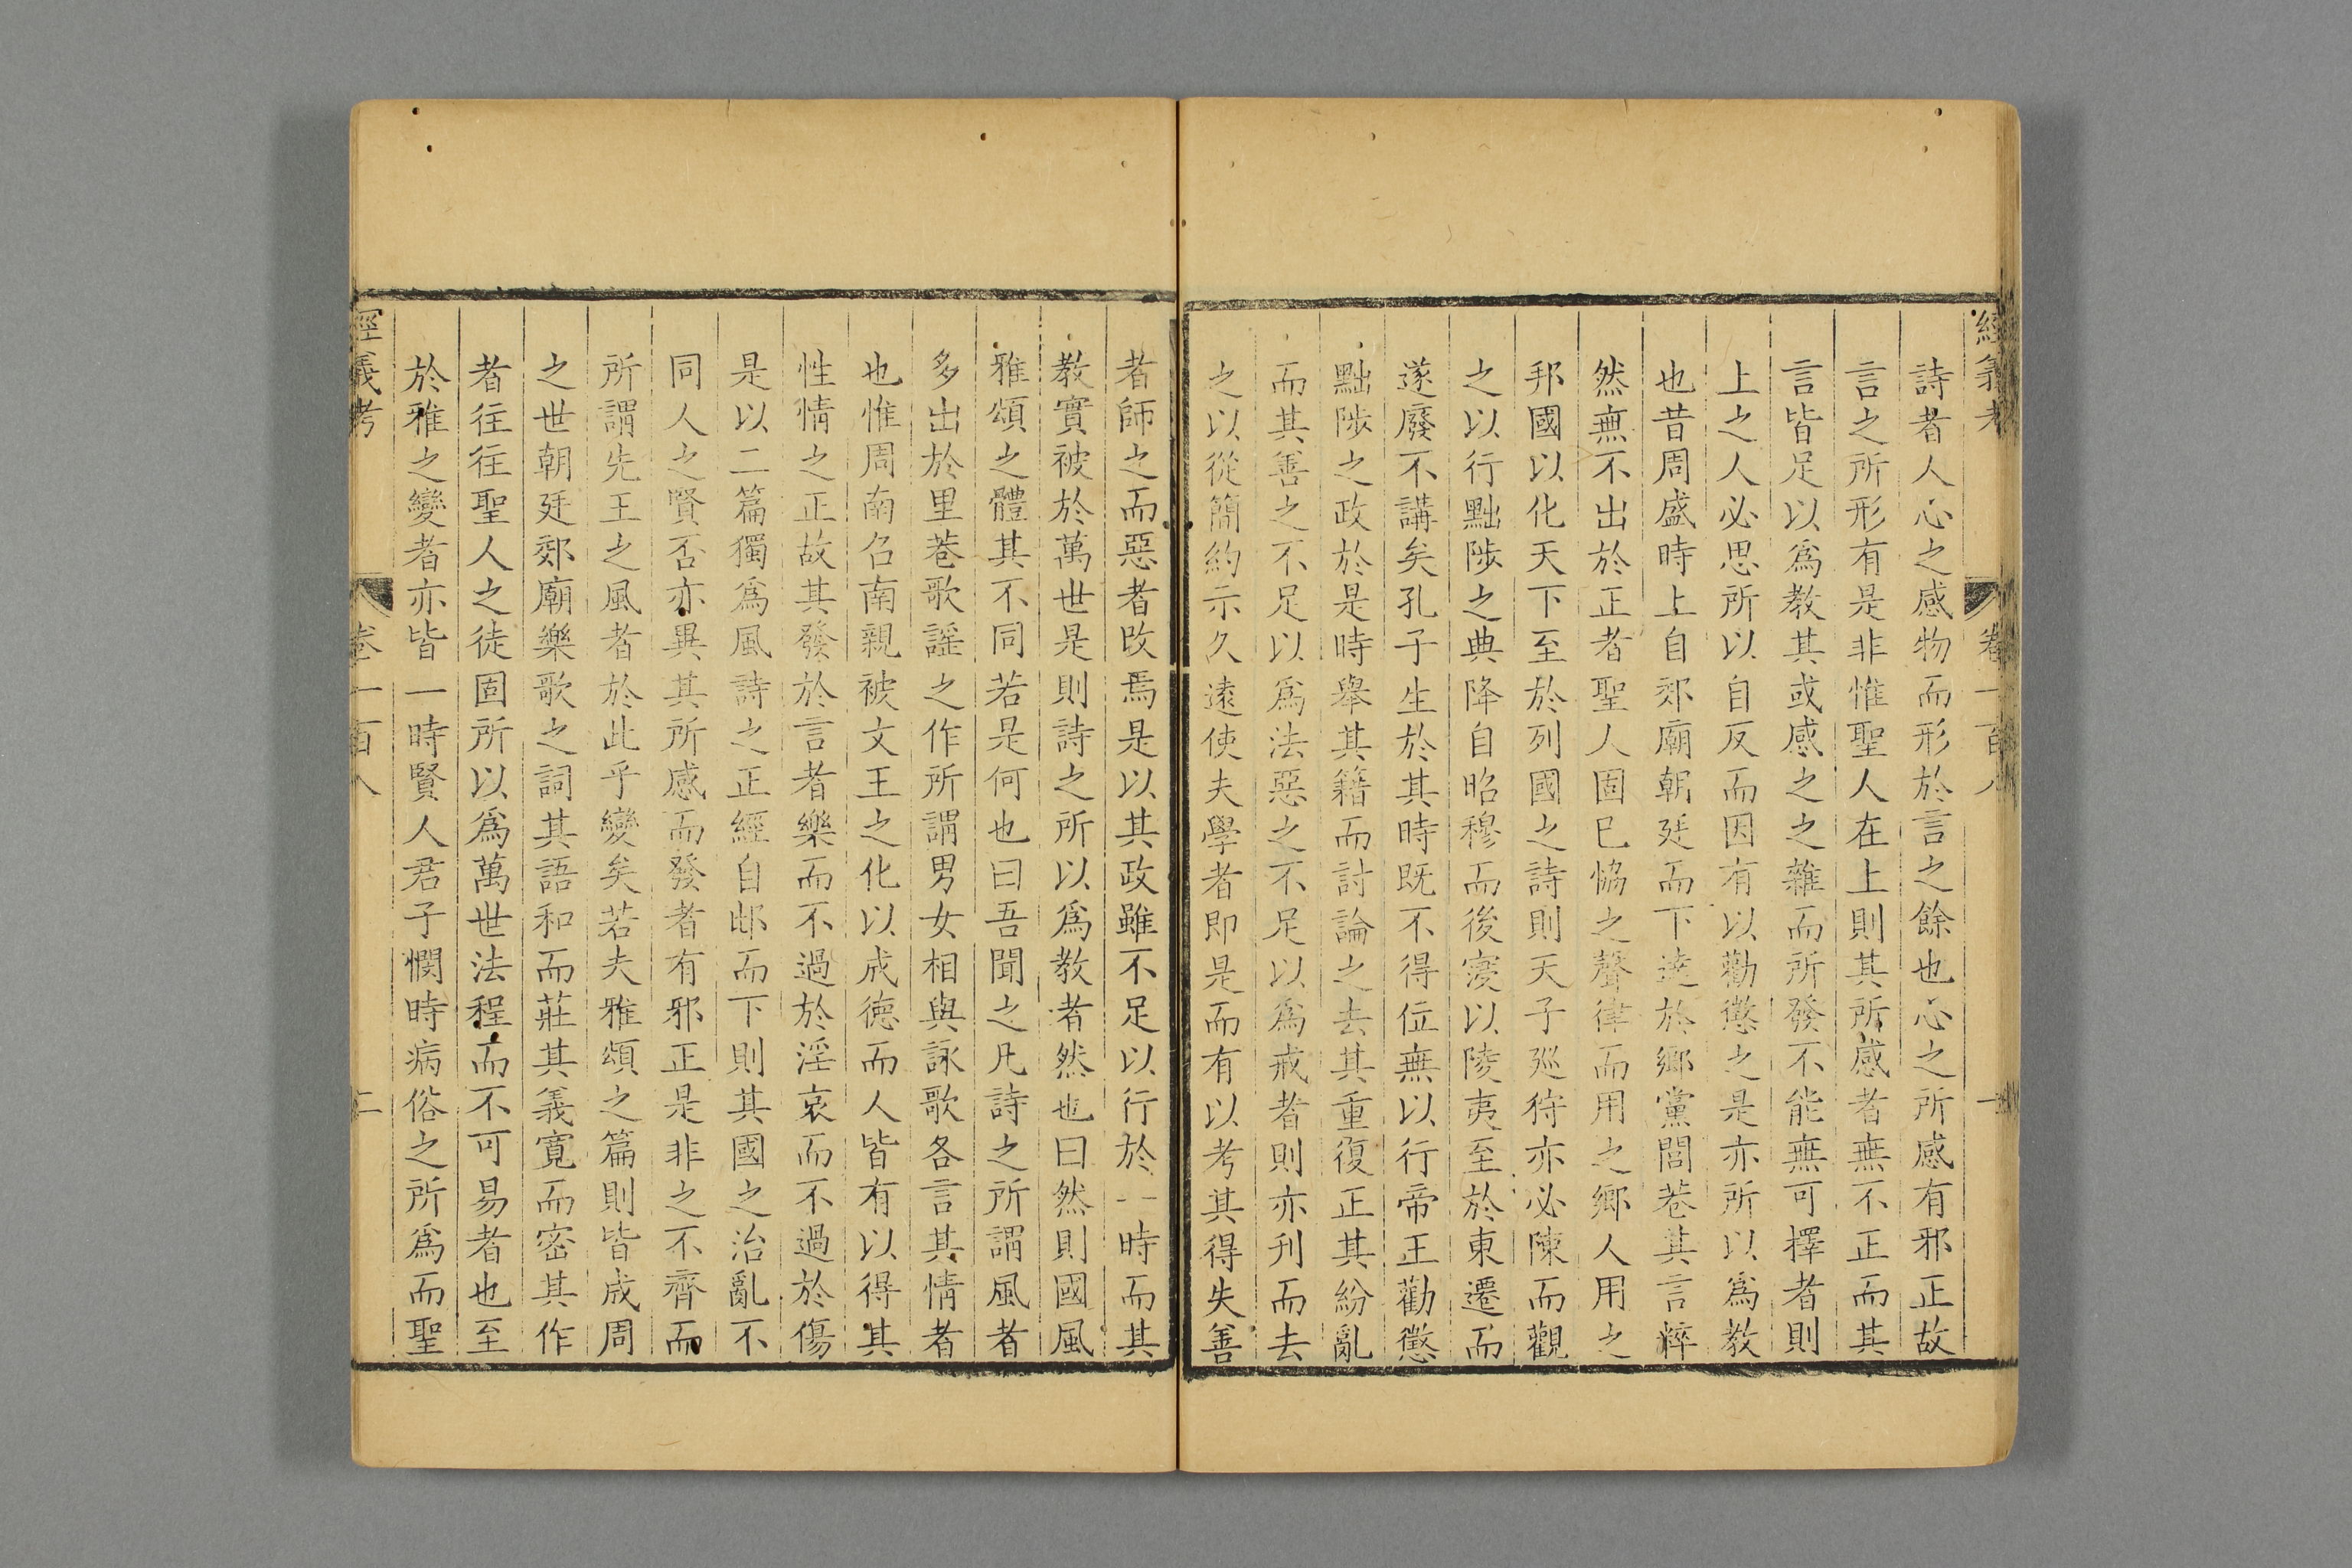 經義考 卷一百八 一
詩者人心之感物而形於言之餘也心之所感有邪正故
言之所形有是非惟聖人在上則其所感者無不正而其
言皆足以爲教其或感之之雜而所發不能無可擇者則
上之人必思所以自反而因有以勸懲之是亦所以爲教
也昔周盛時上自郊廟朝廷而下達於鄉黨閭巷其言粹
然無不出於正者聖人固已恊之聲律而用之鄉人用之
邦國以化天下至於列國之詩則天子廵狩亦必陳而觀
之以行黜陟之典降自昭穆而後寖以陵夷至於東遷而
遂廢不講矣孔子生於其時既不得位無以行帝王勸懲
黜陟之政於是時舉其籍而討論之去其重復正其紛亂
而其善之不足以爲法惡之不足以爲戒者則亦刋而去
之以從簡約示久遠使夫學者即是而有以考其得失善
者師之而惡者改焉是以其政雖不足以行於一時而其
教實被於萬世是則詩之所以爲教者然也曰然則國風
雅頌之體其不同若是何也曰吾聞之凡詩之所謂風者
多出於里巷歌謡之作所謂男女相與詠歌各言其情者
也惟周南召南親被文王之化以成德而人皆有以得其
性情之正故其發於言者樂而不過於淫哀而不過於傷
是以二篇獨爲風詩之正經自邶而下則其國之治亂不
同人之賢否亦異其所感而發者有邪正是非之不齊而
所謂先王之風者於此乎變矣若夫雅頌之篇則皆成周
之世朝廷郊廟樂歌之詞其語和而莊其義寬而密其作
者往往聖人之徒固所以爲萬世法程而不可易者也至
於雅之變者亦皆一時賢人君子憫時病俗之所爲而聖
經義考 卷一百八 二